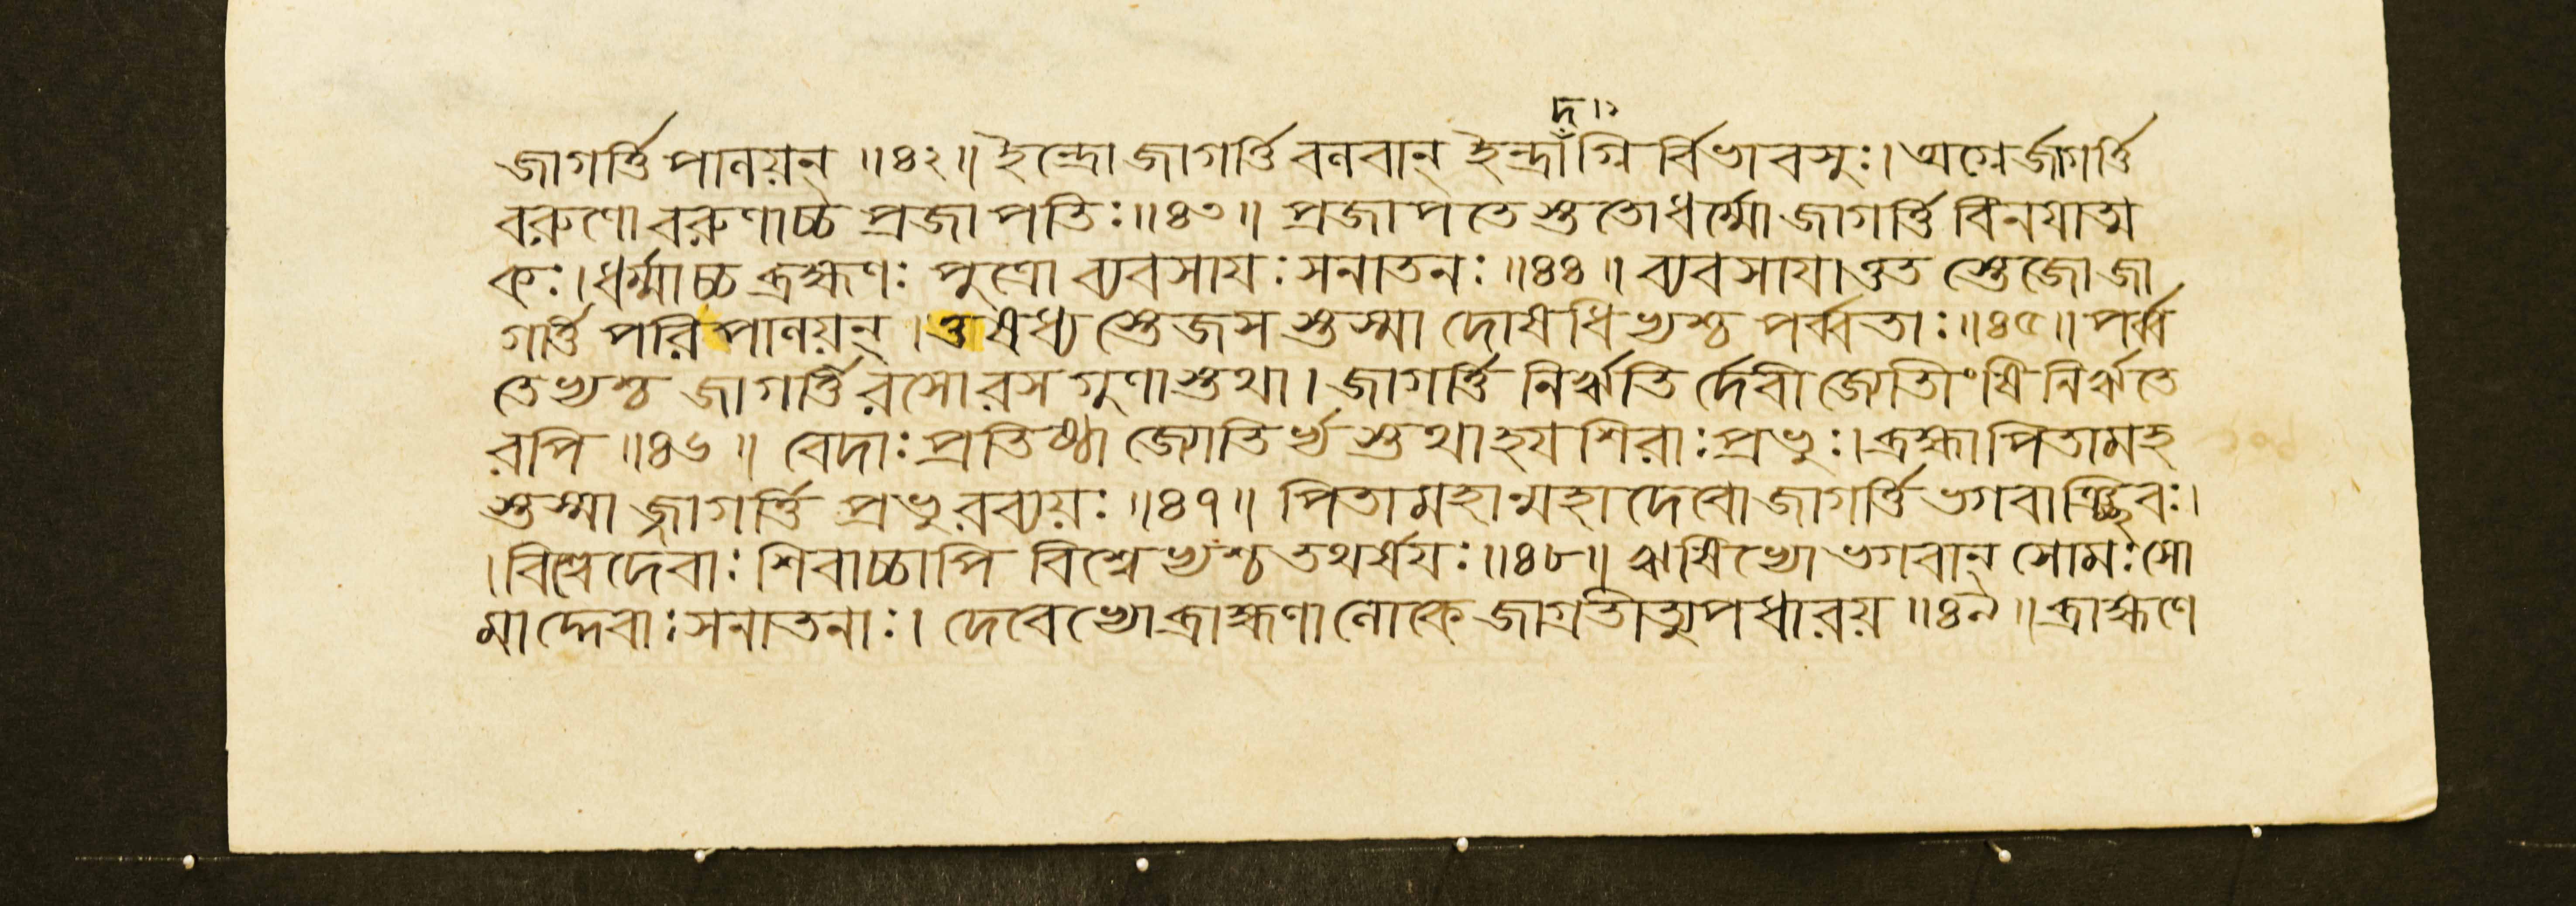 দ ৷১
জাগর্ত্তি পালয়ন্ ॥৪২॥ ইন্দ্রো জাগর্ত্তি বলবান্ ইন্দ্রাঁগ্নি র্বিভাবসুঃ। অগ্নের্জাগর্ত্তি
বরুণো বরুণাচ্চ প্রজাপতিঃ॥৪৩॥ প্রজাপতেস্তুতোধর্ম্মো জাগর্ত্তি বিনয়াত্ম
কঃ। ধর্ম্মাচ্চ ব্রহ্মণঃ পুত্রো ব্যবসায়ঃ সনাতনঃ ॥৪৪॥ ব্যবসায়াত্তত স্তেজো জা
গর্ত্তি পরিপালয়ন্ ।ওষধ্য স্তেজস স্তস্মা দোষধিভ্যশ্চ পর্ব্বতাঃ॥৪৫॥ পর্ব্ব
তেভ্যশ্চ জাগর্ত্তি রসো রস গুণাস্তথা। জাগর্ত্তি নিরৃতি র্দেবী জ্যোতীংষি নিরৃতে
রপি ॥৪৬॥ বেদাঃ প্রতিষ্ঠা জ্যোতির্ভ্য স্তথা হয়শিরাঃ প্রভুঃ। ব্রহ্মা পিতামহ
স্তস্মা জ্জাগর্ত্তি প্রভুরব্যয়ঃ ॥৪৭॥ পিতামহান্মহাদেবো জাগর্ত্তি ভগবাঞ্ছিবঃ।
। বিশ্বেদেবাঃ শিবাচ্চাপি বিশ্বেভ্যশ্চ তথর্ষয়ঃ ॥৪৮॥ ঋষিভ্যো ভগবান্ সোমঃ সো
মাদ্দেবাঃ সনাতনাঃ। দেবেভ্যো ব্রাহ্মণা লোকে জাগ্রতীত্যুপধারয় ॥৪৯॥ ব্রাহ্মণে